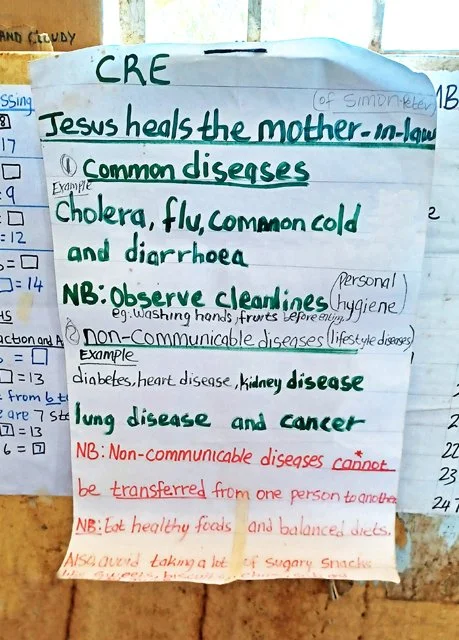 AND CLOUDY
CRE
(of Simon-Peter)
Jesus heals the mother-in-law
① Common diseases
Example
Cholera, flu, common cold
and diarrhoea
NB: Observe cleanlines (Personal hygiene)
eg. washing hands, fruits before eating
② non-communicable diseases (lifestyle diseases)
Example
diabetes, heart disease, kidney disease
lung disease and cancer
NB: Non-communicable diseases cannot*
be transferred from one person to another
NB: Eat healthy foods and balanced diets.
Also, avoid taking a lot of sugary snacks
like sweets,
ssing
8
17
= 9
= 12
= 14
HS
action and A
=
= 13
from 6 to
e are 7 ste
7 = 13
6 = 7
MB
2
2
22
23
247